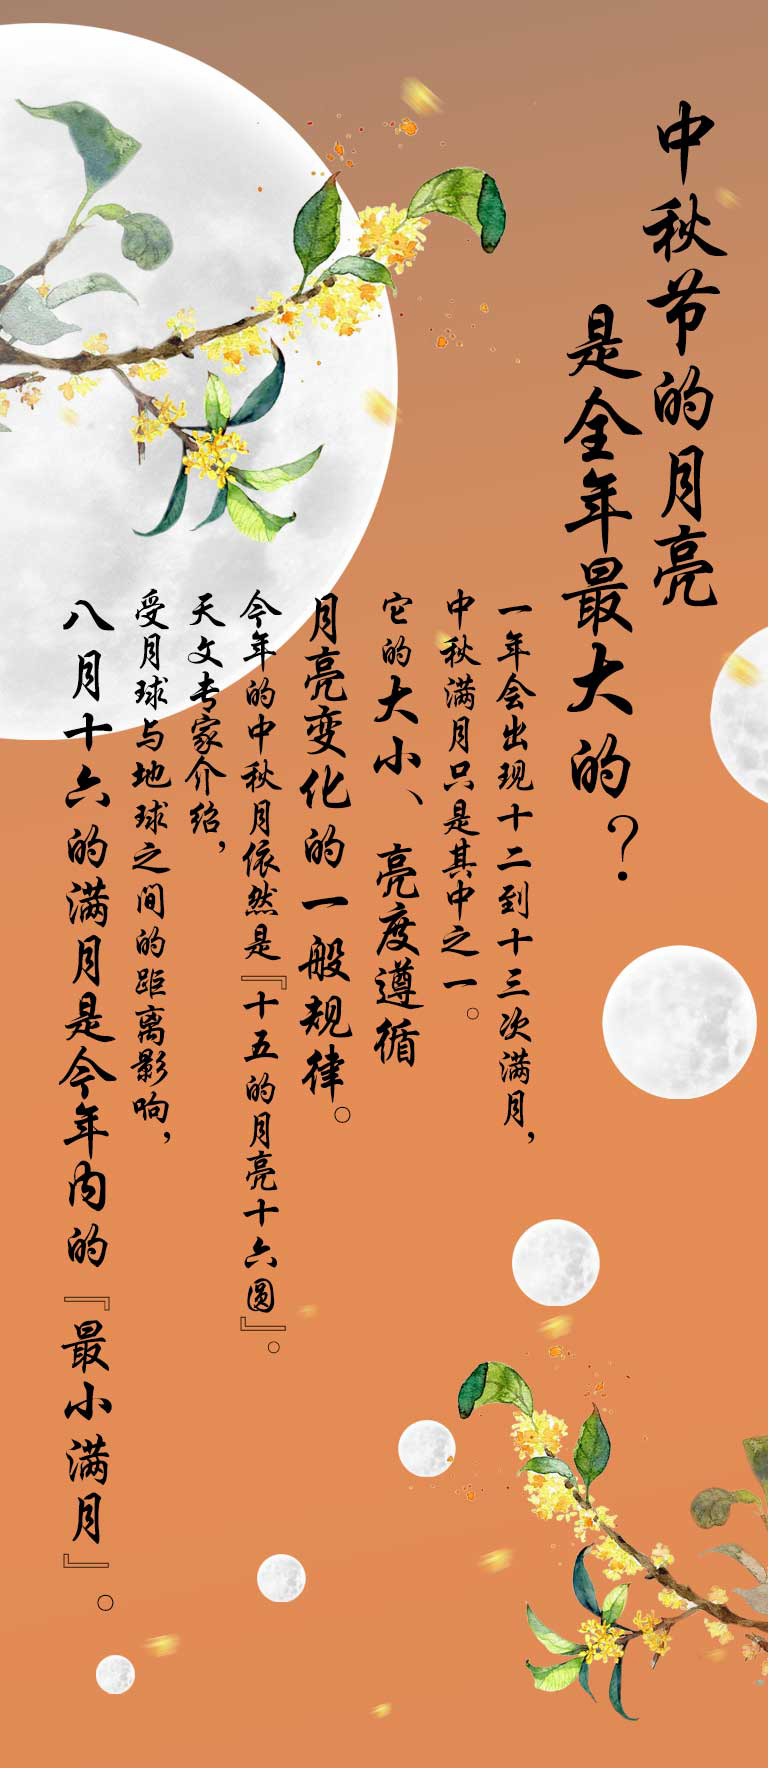 中秋节的月亮
是全年最大的？
一年会出现十二到十三次满月，
中秋满月只是其中之一。
它的大小、亮度遵循
月亮变化的一般规律。
今年的中秋月依然是『十五的月亮十六圆』。
天文专家介绍，
受月球与地球之间的距离影响，
八月十六的满月是今年内的『最小满月』。